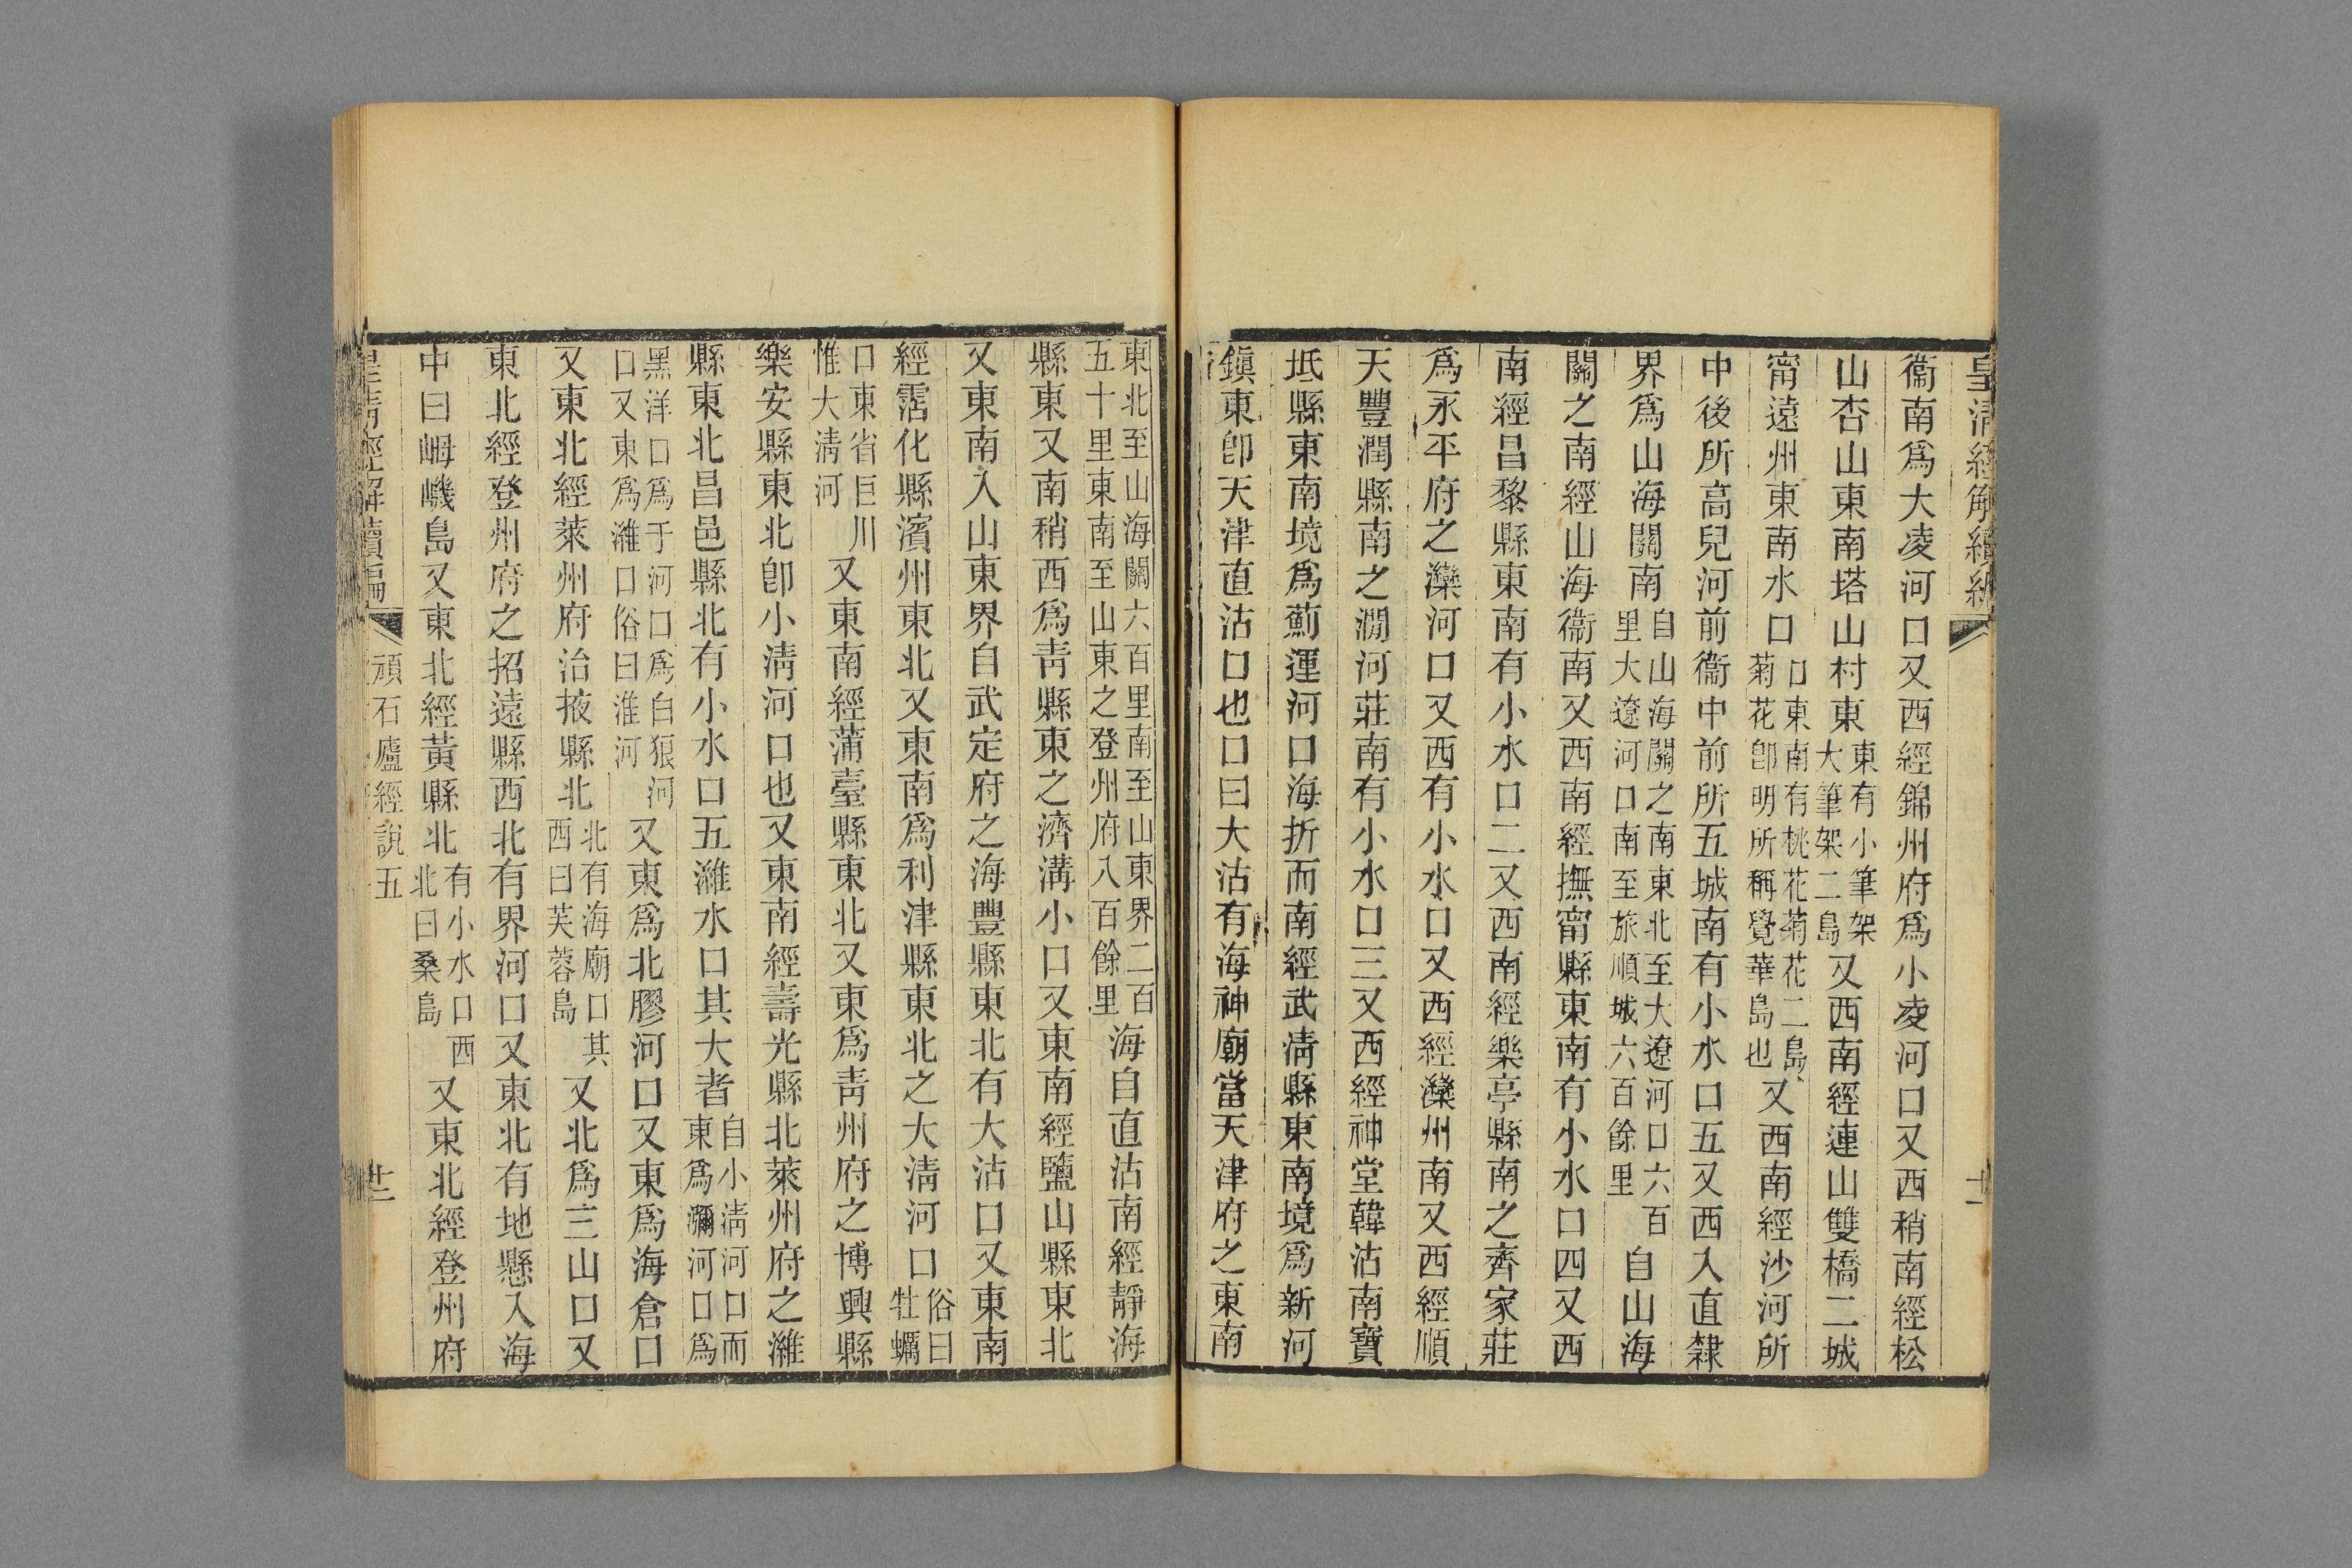 皇清經解續編
十一
衞南爲大凌河口又西經錦州府爲小凌河口又西稍南經松
山杏山東南塔山村東東有小筆架大筆架二島又西南經連山雙橋二城
甯遠州東南水口口東南有桃花菊花二島菊花卽明所稱覺華島也又西南經沙河所
中後所高兒河前衞中前所五城南有小水口五又西入直隸
界爲山海關南自山海關之南東北至大遼河口六百里大遼河口南至旅順城六百餘里自山海
關之南經山海衞南又西南經撫甯縣東南有小水口四又西
南經昌黎縣東南有小水口二又西南經樂亭縣南之齊家莊
爲永平府之灤河口又西有小水口又西經灤州南又西經順
天豐潤縣南之澗河莊南有小水口三又西經神堂韓沽南寶
坻縣東南境爲薊運河口海折而南經武淸縣東南境爲新河
鎭東卽天津直沽口也口曰大沽有海神廟當天津府之東南
東北至山海關六百里南至山東界二百五十里東南至山東之登州府八百餘里海自直沽南經靜海
縣東又南稍西爲靑縣東之濟溝小口又東南經鹽山縣東北
又東南入山東界自武定府之海豐縣東北有大沽口又東南
經霑化縣濱州東北又東南爲利津縣東北之大淸河口俗曰牡蠣
口東省巨川惟大淸河又東南經蒲臺縣東北又東爲靑州府之博興縣
樂安縣東北卽小淸河口也又東南經壽光縣北萊州府之濰
縣東北昌邑縣北有小水口五濰水口其大者自小淸河口而東爲瀰河口爲
黑洋口爲于河口爲白狼河口又東爲濰口俗曰淮河又東爲北膠河口又東爲海倉口
又東北經萊州府治掖縣北北有海廟口其西曰芙蓉島又北爲三山口又
東北經登州府之招遠縣西北有界河口又東北有地懸入海
中曰㟂嶬島又東北經黃縣北有小水口西北曰桑島又東北經登州府
皇淸經解續編
頑石廬經說五
十二